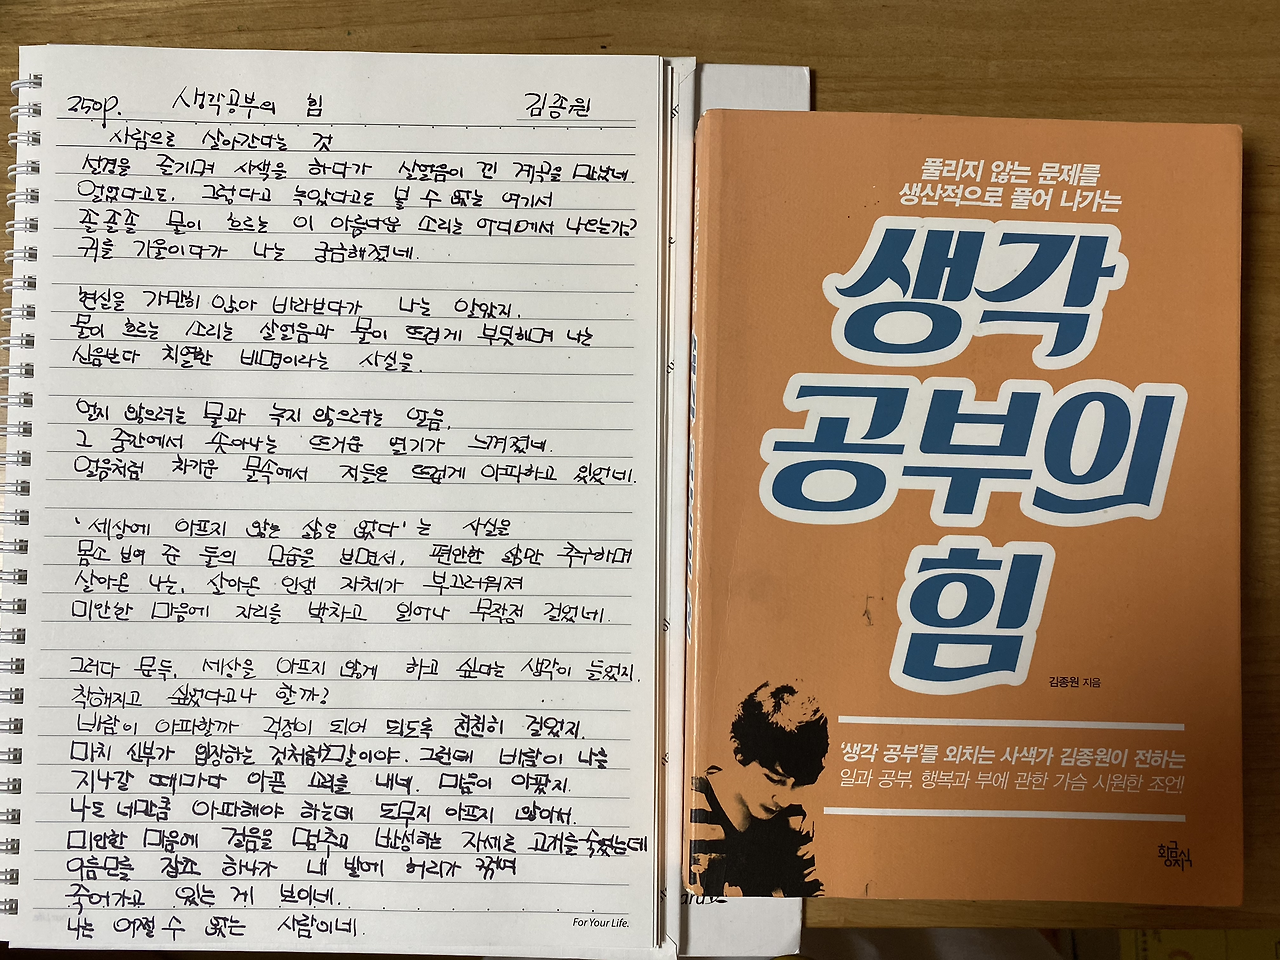 250p. 생각공부의 힘 김종원
사람으로 살아간다는 것
설경을 즐기며 사색을 하다가 살얼음이 낀 계곡을 만났네.
얼었다고도, 그렇다고 녹았다고도 볼 수 없는 여기서
졸졸졸 물이 흐르는 이 아름다운 소리는 어디에서 나오는가?
귀를 기울이다가 나는 궁금해졌네.
현실을 가만히 앉아 바라보다가 나는 알았지.
물이 흐르는 소리는 살얼음과 물이 뜨겁게 부딪히며 나는
신음보다 치열한 비명이라는 사실을.
얼지 않으려는 물과 녹지 않으려는 얼음,
그 중간에서 솟아나는 뜨거운 열기가 느껴졌네.
얼음처럼 차가운 물속에서 저들은 뜨겁게 아파하고 있었네.
'세상에 아프지 않는 삶은 없다'는 사실을
몸소 보여 준 둘의 모습을 보면서, 편안한 삶만 추구하며
살아온 나는, 살아온 인생 자체가 부끄러워져
미안한 마음에 자리를 박차고 일어나 무작정 걸었네.
그러다 문득, 세상을 아프지 않게 하고 싶다는 생각이 들었지.
착해지고 싶었다고나 할까?
바람이 아파할까 걱정이 되어 되도록 천천히 걸었지.
마치 신부가 입장하는 것처럼? 말이야. 그런데 바람이 나를
지나갈 때마다 아픈 소리를 내네. 마음이 아팠지.
나도 네만큼 아파해야 하는데 도무지 아프지 않아서.
미안한 마음에 걸음을 멈추고 반성하는 자세로 고개를 숙였는데
이름모를 잡초 하나가 내 발에 허리가 꺾여
죽어가고 있는 게 보이네.
나는 어쩔 수 없는 사람이네.
For Your Life.
풀리지 않는 문제를
생산적으로 풀어 나가는
생각
공부의
힘
김종원 지음
'생각 공부'를 외치는 사색가 김종원이 전하는
일과 공부, 행복과 부에 관한 가슴 시원한 조언!
황금지식